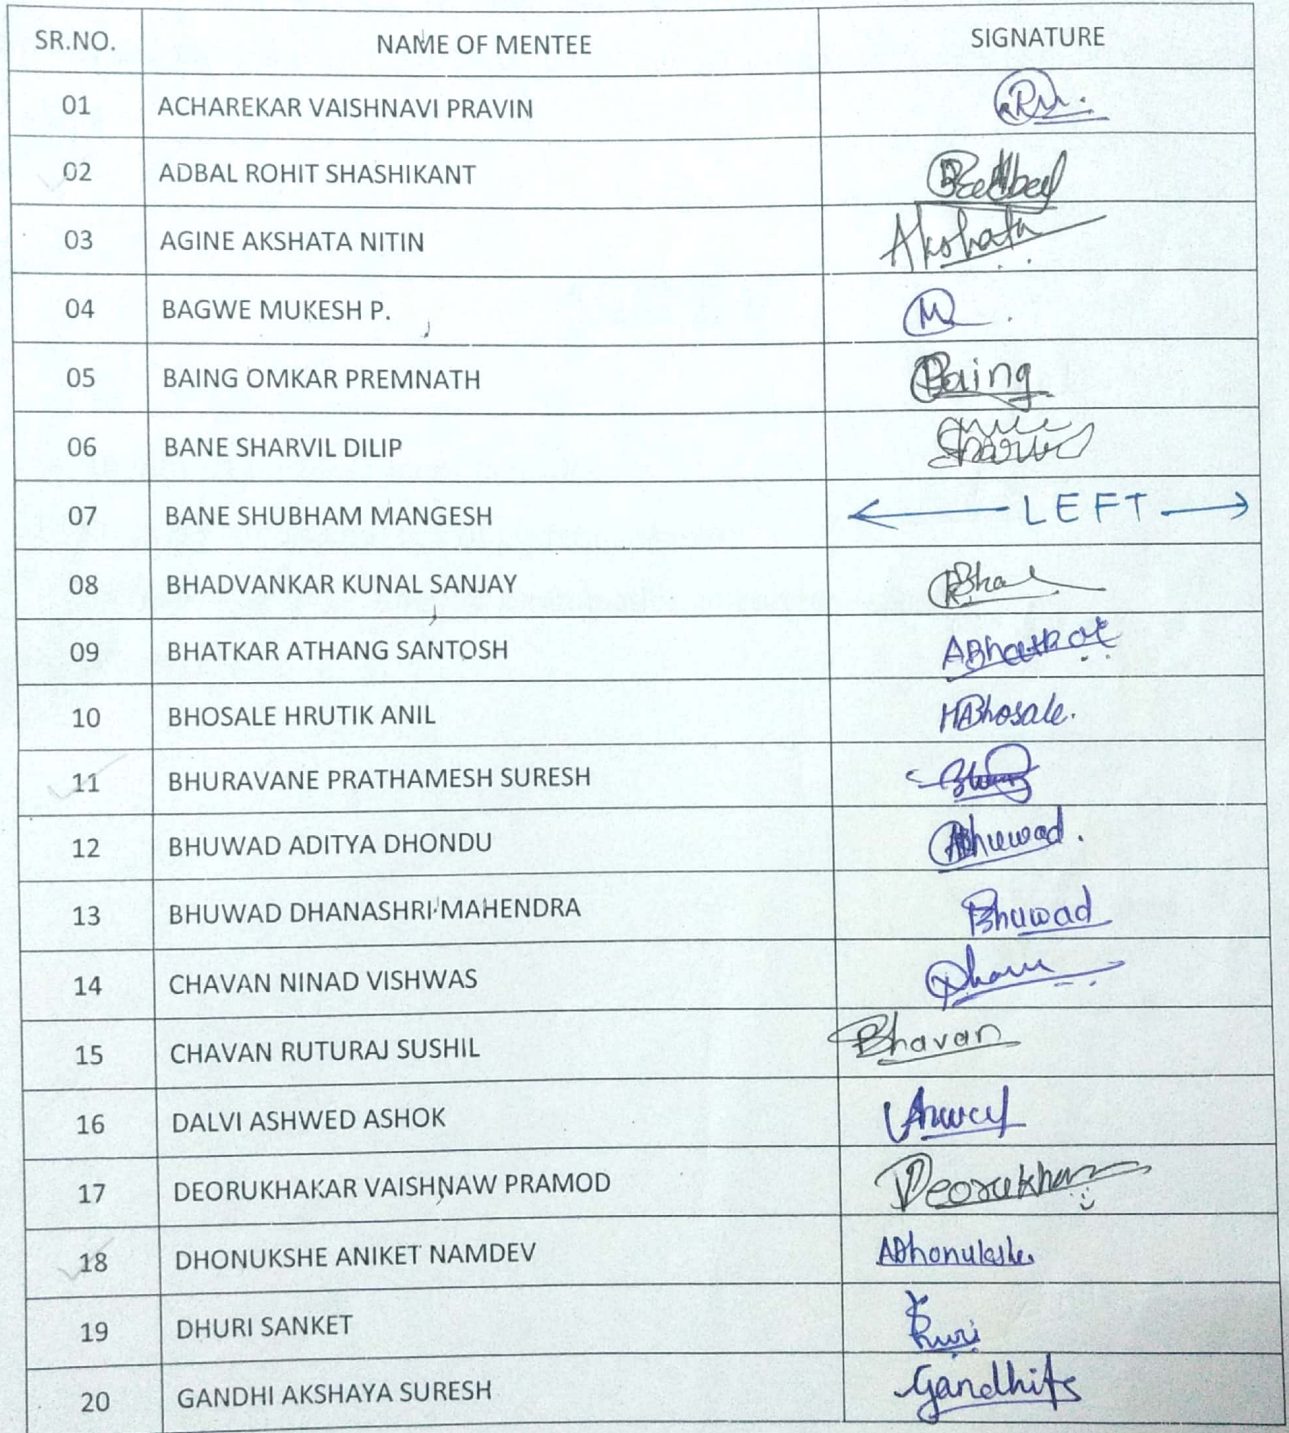 SR.NO. NAME OF MENTEE SIGNATURE
01 ACHAREKAR VAISHNAVI PRAVIN
02 ADBAL ROHIT SHASHIKANT
03 AGINE AKSHATA NITIN Akshata
04 BAGWE MUKESH P. M
05 BAING OMKAR PREMNATH Baing
06 BANE SHARVIL DILIP
07 BANE SHUBHAM MANGESH LEFT
08 BHADVANKAR KUNAL SANJAY
09 BHATKAR ATHANG SANTOSH ABhatkar
10 BHOSALE HRUTIK ANIL HABhosale.
11 BHURAVANE PRATHAMESH SURESH
12 BHUWAD ADITYA DHONDU ABhuwad.
13 BHUWAD DHANASHRI MAHENDRA Bhuwad
14 CHAVAN NINAD VISHWAS
15 CHAVAN RUTURAJ SUSHIL
16 DALVI ASHWED ASHOK
17 DEORUKHAKAR VAISHNAW PRAMOD
18 DHONUKSHE ANIKET NAMDEV ADhonukshe
19 DHURI SANKET
20 GANDHI AKSHAYA SURESH